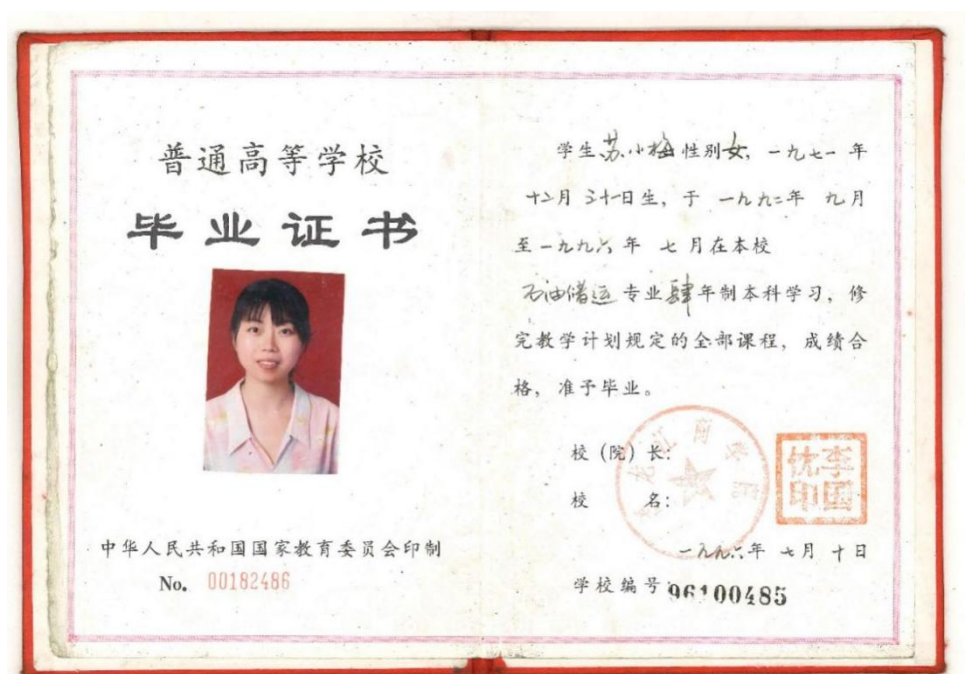 普通高等学校
毕业证书
中华人民共和国国家教育委员会印制
No. 00182486
学生苏小梅性别女，一九七一年
十二月三十一日生，于一九九二年九月
至一九九六年七月在本校
石油储运专业肆年制本科学习，修
完教学计划规定的全部课程，成绩合
格，准予毕业。
校（院）长：
李国忱印
校名：
黑龙江商学院
一九九六年七月十日
学校编号：96100485